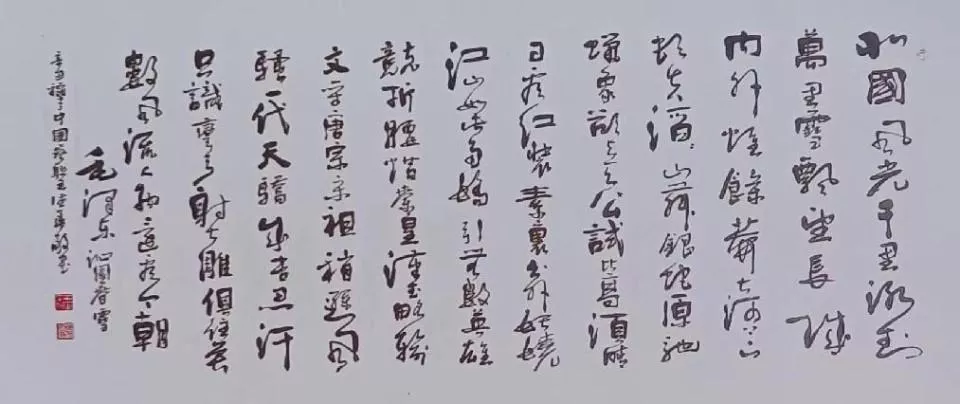 北國風光千里冰封
萬里雪飄望長城
内外惟餘莽莽大河上下
頓失滔滔山舞銀蛇原馳
蠟象欲与天公試比高須晴
日看红裝素裹分外妖嬈
江山如此多嬌引無數英雄
競折腰惜秦皇漢武略輸
文采唐宗宋祖稍遜風
騷一代天驕成吉思汗
只識彎弓射大雕俱往矣
數風流人物還看今朝
毛澤东沁園春雪
中國